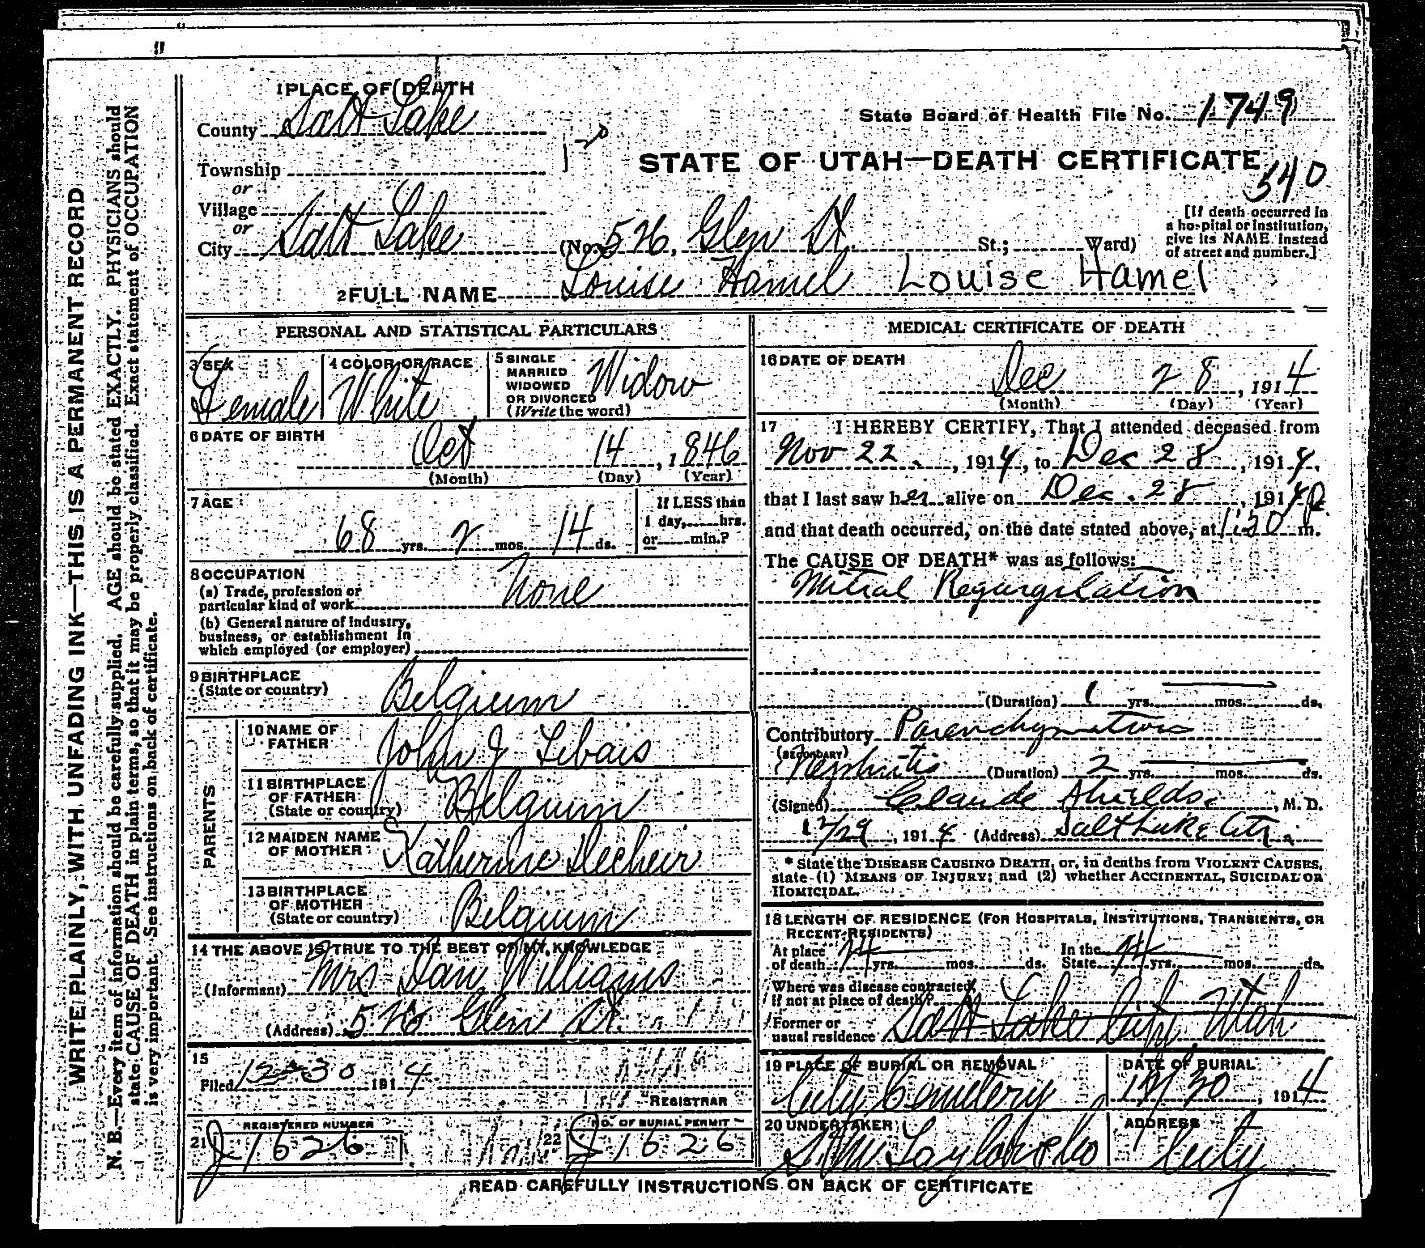 1 PLACE OF DEATH
County Salt Lake
State Board of Health File No. 1749
Township
or
STATE OF UTAH—DEATH CERTIFICATE
540
Village
or
City Salt Lake (No. 526, Glen St. St.; Ward)
[If death occurred in a hospital or institution, give its NAME instead of street and number.]
2 FULL NAME Louise Hamel Louise Hamel
PERSONAL AND STATISTICAL PARTICULARS
3 SEX Female
4 COLOR OR RACE White
5 SINGLE MARRIED WIDOWED OR DIVORCED (Write the word) Widow
6 DATE OF BIRTH Oct 14, 1846
(Month) (Day) (Year)
7 AGE 68 yrs. 2 mos. 14 ds.
If LESS than 1 day, hrs. or min.?
8 OCCUPATION
(a) Trade, profession or particular kind of work None
(b) General nature of industry, business, or establishment in which employed (or employer)
9 BIRTHPLACE
(State or country) Belgium
PARENTS
10 NAME OF FATHER John J Libais
11 BIRTHPLACE OF FATHER (State or country) Belgium
12 MAIDEN NAME OF MOTHER Katherine
13 BIRTHPLACE OF MOTHER (State or country) Belgium
14 THE ABOVE IS TRUE TO THE BEST OF MY KNOWLEDGE
(Informant) Mrs Dan Williams
(Address) 526 Glen St.
15
Filed 12-30 1914
REGISTRAR
21 REGISTERED NUMBER J 1626
22 NO. OF BURIAL PERMIT J 1626
MEDICAL CERTIFICATE OF DEATH
16 DATE OF DEATH
Dec 28, 1914
(Month) (Day) (Year)
17 I HEREBY CERTIFY, That I attended deceased from
Nov 22, 1914, to Dec 28, 1914,
that I last saw her alive on Dec. 28, 1914
and that death occurred, on the date stated above, at 1:30 P m.
The CAUSE OF DEATH* was as follows:
Mitral Regurgitation
(Duration) 1 yrs. mos. ds.
Contributory Parenchymatous
(SECONDARY)
Nephritis (Duration) 2 yrs. mos. ds.
(Signed) Claude Shields, M. D.
12/29, 1914 (Address) Salt Lake City.
* State the DISEASE CAUSING DEATH, or, in deaths from VIOLENT CAUSES, state (1) MEANS OF INJURY; and (2) whether ACCIDENTAL, SUICIDAL OR HOMICIDAL.
18 LENGTH OF RESIDENCE (FOR HOSPITALS, INSTITUTIONS, TRANSIENTS, OR RECENT RESIDENTS)
At place of death 24 yrs. mos. ds. In the State 24 yrs. mos. ds.
Where was disease contracted if not at place of death?
Former or usual residence Salt Lake City Utah
19 PLACE OF BURIAL OR REMOVAL City Cemetery
DATE OF BURIAL 12/30, 1914
20 UNDERTAKER S. M. Taylor & Co
ADDRESS City
READ CAREFULLY INSTRUCTIONS ON BACK OF CERTIFICATE
WRITE PLAINLY, WITH UNFADING INK—THIS IS A PERMANENT RECORD
N. B.—Every item of information should be carefully supplied. AGE should be stated EXACTLY. PHYSICIANS should
state CAUSE OF DEATH in plain terms, so that it may be properly classified. Exact statement of OCCUPATION
is very important. See instructions on back of certificate.